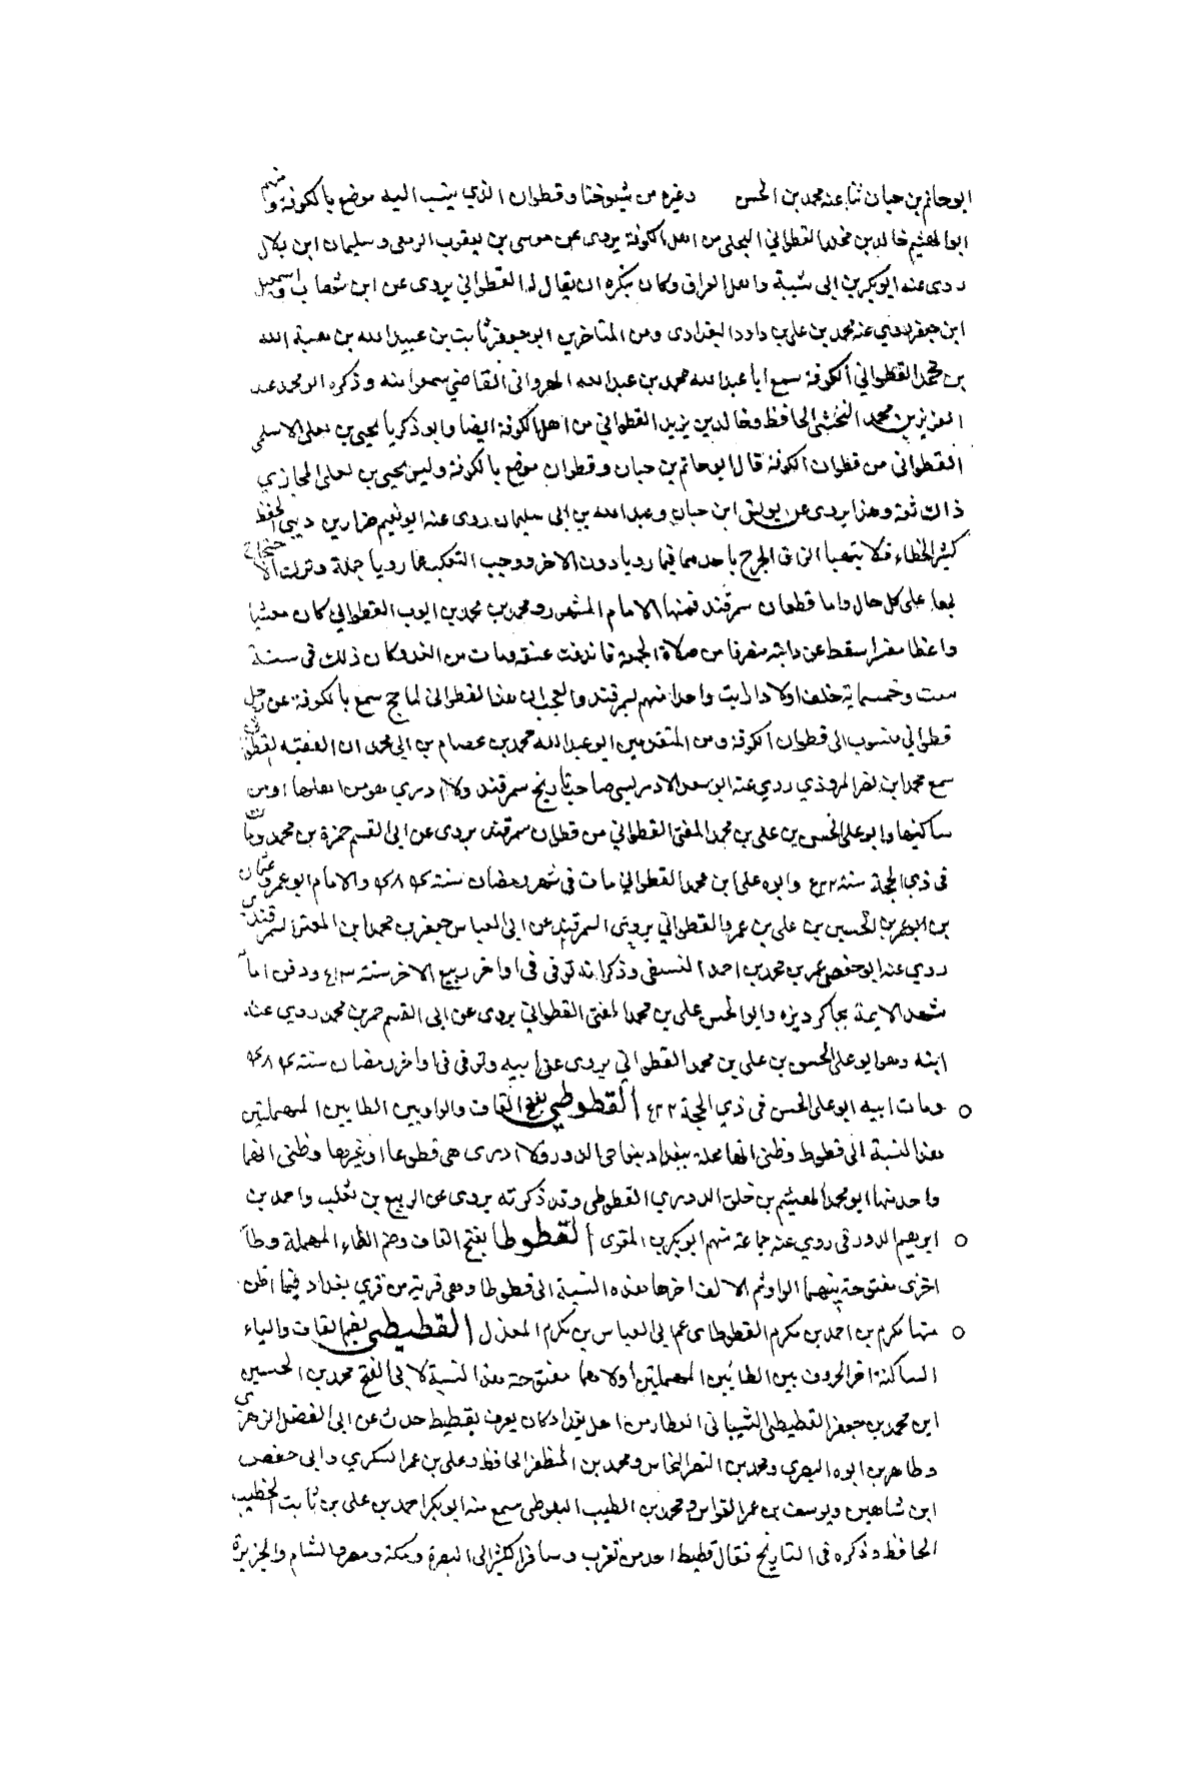 ابوحاتم بن حبان ثنا عنه محمد بن الحسن وغيره من شيوخنا وقطوان الذي ينسب اليه موضع بالكوفة ومنهم
ابو الهيثم خالد بن مخلد القطواني البجلي من اهل الكوفة يروى عن موسى بن يعقوب الزمعى وسليمان ابن بلال
روى عنه ابو بكر بن ابى شيبة واهل العراق وكان يكره ان يقال له القطواني يروى عن ابن شهاب واسمعيل
ابن جعفر روي عنه محمد بن على بن داود البغدادى ومن المتاخرين ابو جعفر ثابت بن عبيد الله بن هبة الله
بن محمد القطواني الكوفة سمع ابا عبد الله محمد بن عبد الله الهروانى القاضي سمعوا منه وذكره ابو محمد عبد
العزيز بن محمد النخشبى الحافظ وخالد بن يزيد القطواني من اهل الكوفة ايضا وابو زكريا يحيى بن يعلى الاسلمى
القطوانى من قطوان الكوفة قال ابو حاتم بن حبان وقطوان موضع بالكوفة وليس يحيى بن يعلى المحاربي
ذاك ثقة وهذا يروى عن يونس ابن حبان وعبد الله بن ابى سليمان روى عنه ابو نعيم ضرار بن
كثير الخطاء فلا يتهيا الزاق الجرح باحدهما فيما رويا دون الاخر ووجب التنكب عما رويا جملة وترك الاحتجاج
بهما على كل حال واما قطوان سمرقند فمنها الامام المشهور محمد بن محمد بن ايوب القطواني كان مفتيا
واعظا مفسرا سقط عن دابته منصرفا من صلاة الجمعة فاندقت عنقه ومات من الغد وكان ذلك فى سنة
ست وخمسماية خلف اولادا رايت واحدا منهم بسمرقند والعجب ان هذا القطوانى لما حج سمع بالكوفة عن رجل
قطواني منسوب الى قطوان الكوفة ومن المتقدمين ابو عبد الله محمد بن عصام بن ابى محمد ان الفقيه القطوانى
سمع محمد ابن نصر المروذي روي عنه ابو سعد الادريسى صاحب تاريخ سمرقند ولا ادرى هو من اهلها او من
ساكنيها وابو على الحسن بن على بن محمد المفتى القطواني من قطوان سمرقند يروى عن ابى القسم حمزة بن محمد ومات
فى ذي الحجة سنة ٤٢٢ وابوه على ابن محمد القطواني مات فى شهر رمضان سنة والامام ابو عمرو عثمان
بن ابو عمر بن الحسين بن على بن عمرو القطواني يروى السمرقندى عن ابى العباس جعفر بن محمد ابن المعتز السمرقندى
روي عنه ابو حفص عمر بن محمد بن احمد النسفى وذكر انه توفى فى اواخر ربيع الاخر سنة ودفن امام
شهد الايمة بجاكرديزه وابو الحسن على بن محمد المفتى القطواني يروى عن ابى القسم حمزة بن محمد روي عنه
ابنه وهو ابو على الحسن بن على بن محمد القطواني يروى عن ابيه وتوفى فى اواخر رمضان سنة
ومات ابيه ابو على الحسن فى ذي الحجة ٤٢٢ القطوطي بفتح القاف والواو بين الطايين المهملتين
هذا النسبة الى قطوط وظنى انها محلة ببغداد بنواحى الدور ولا ادرى هى قطوعا او غيرها وظنى انهما
واحد منها ابو محمد الهيثم بن خلف الدورى القطوطي وقد ذكرته يروى عن الربيع بن ثعلب واحمد بن
ابرهيم الدورقى روي عنه جماعة منهم ابو بكر بن المقرى القطوطا بفتح القاف وضم الطاء المهملة وطاء
اخرى مفتوحة بينهما الواو ثم الالف اخرها هذه النسبة الى قطوطا وهى قرية من قرى بغداد فيما اظن
منها مكرم بن احمد بن مكرم القطوطاى عم ابي العباس بن مكرم المعدل القطيطى بضم القاف والياء
الساكنة اخر الحروف بين الطايين المهملتين اولاهما مفتوحة هذا النسبة لابى الفتح محمد بن الحسين
ابن محمد بن جعفر القطيطى الشيبانى العطار من اهل بغداد كان يعرف بقطيط حدث عن ابى الفضل الزهرى
وطاهر بن ابوه البصري ومحمد بن النصر النخاس ومحمد بن المظفر الحافظ وعلى بن عمر السكري وابى حفص
ابن شاهين ويوسف بن عمر القواس ومحمد بن الطيب البلوطى سمع منه ابو بكر احمد بن على بن ثابت الخطيب
الحافظ وذكره فى التاريخ فقال قطيط احد من تغرب وسافر الكثير الى البصرة ومكة ومصر والشام والجزيرة